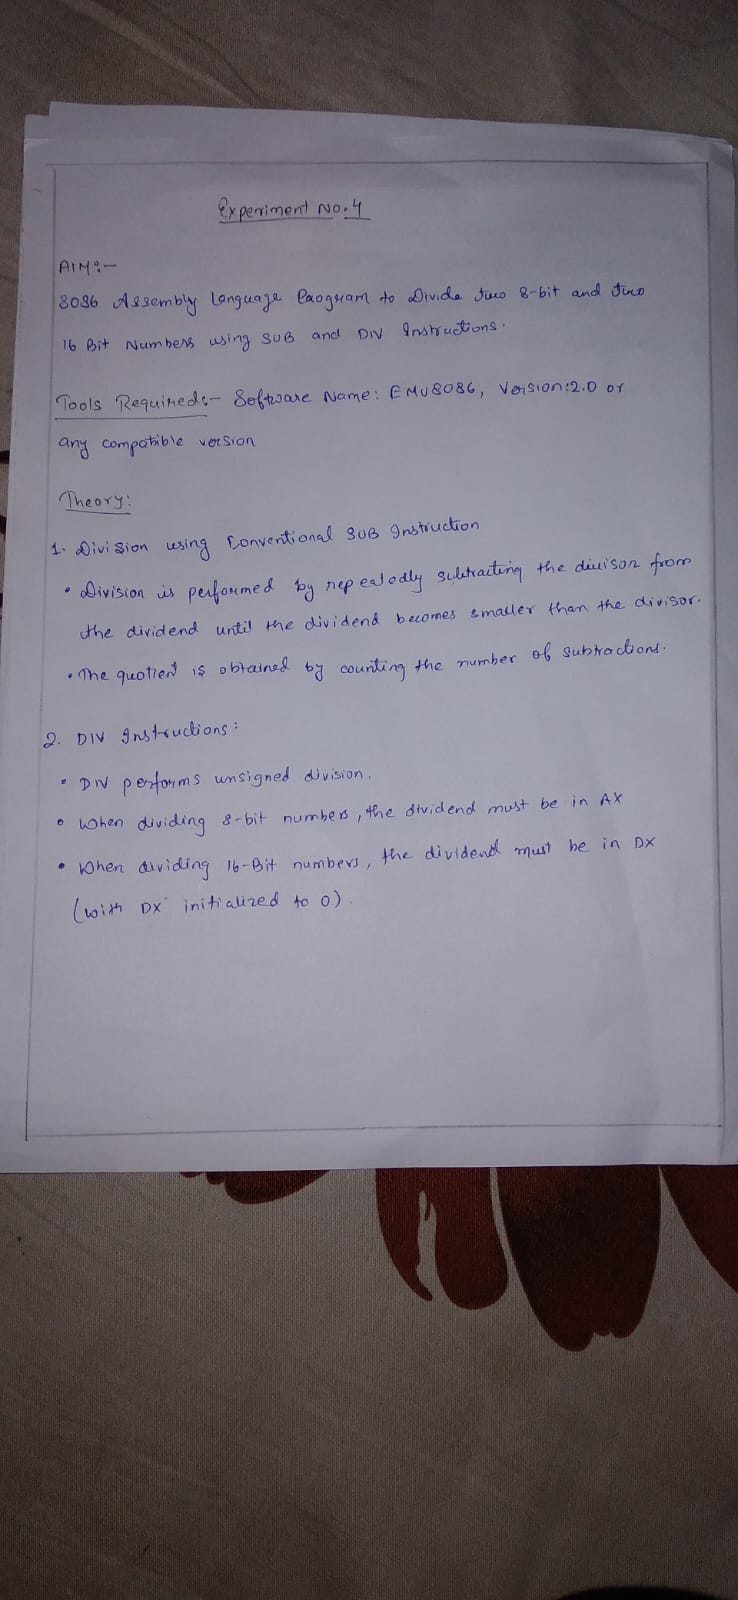 Experiment No.4
AIM:-
8086 Assembly Language Program to Divide two 8-bit and two
16 Bit Numbers using SUB and DIV Instructions.
Tools Required:- Software Name: EMU8086, Version:2.0 or
any compatible version
Theory:
1. Division using Conventional SUB Instruction
• Division is performed by repeatedly subtracting the divisor from
the dividend until the dividend becomes smaller than the divisor.
• The quotient is obtained by counting the number of subtractions.
2. DIV Instructions:
• DIV performs unsigned division.
• When dividing 8-bit numbers, the dividend must be in AX
• When dividing 16-Bit numbers, the dividend must be in DX
(with DX initialized to 0).